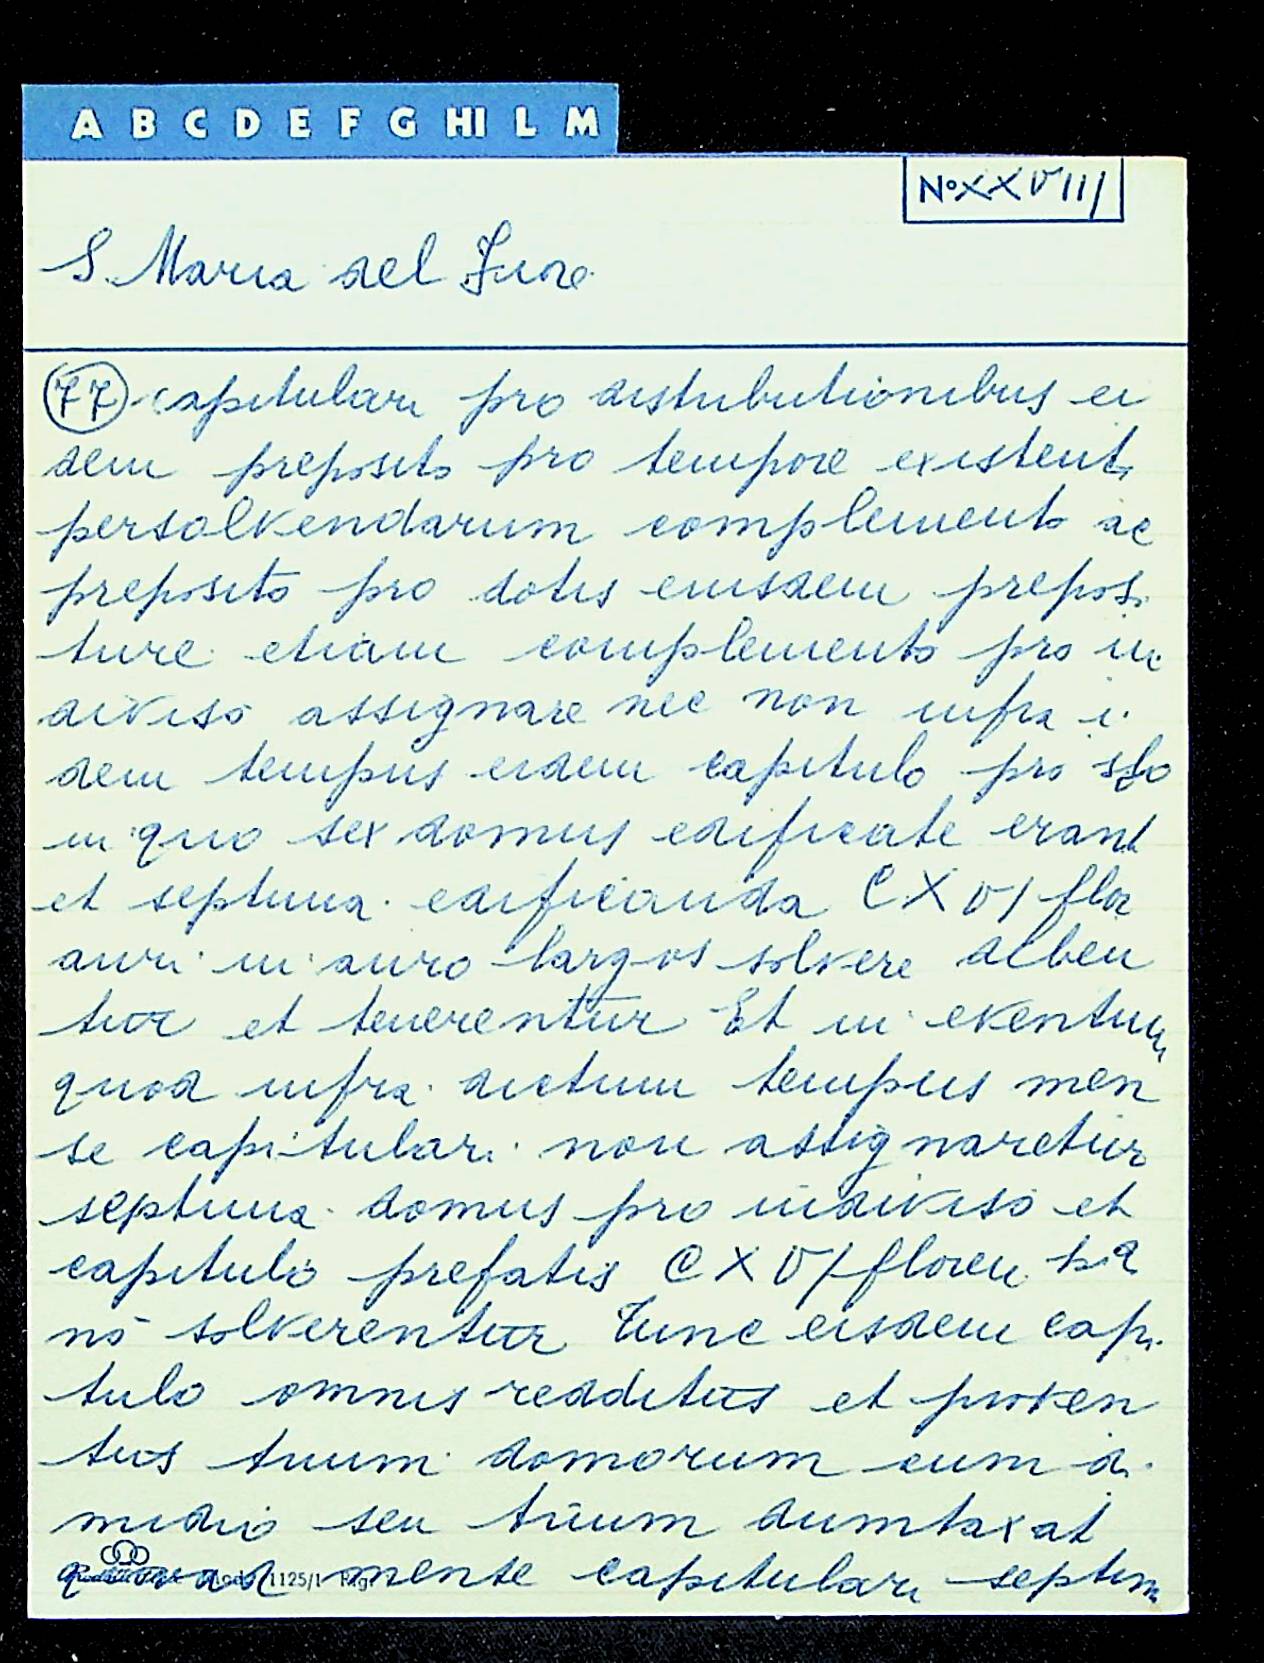 A B C D E F G HI L M
No XXVIII
S. Maria del Fiore
77 capitulari pro distributionibus ei
dem preposito pro tempore existenti
persolvendarum complemento ac
preposito pro dotis eiusdem preposi
ture etiam complemento pro in
diviso assignare nec non infra i
dem tempus eidem capitulo pro
in quo sex domus edificate erant
et septima edificanda CXVI flor
auri in auro largos solvere deben
tur et tenerentur Et in eventum
quod infra dictum tempus men
se capitulari non assignaretur
septima domus pro indiviso et
capitulo prefatis CXVI floren
no solverentur Tunc eisdem capi
tulo omnis redditus et proven
tus trium domorum cum di
midio seu trium dumtaxat
mente capitulari septim
1125/1